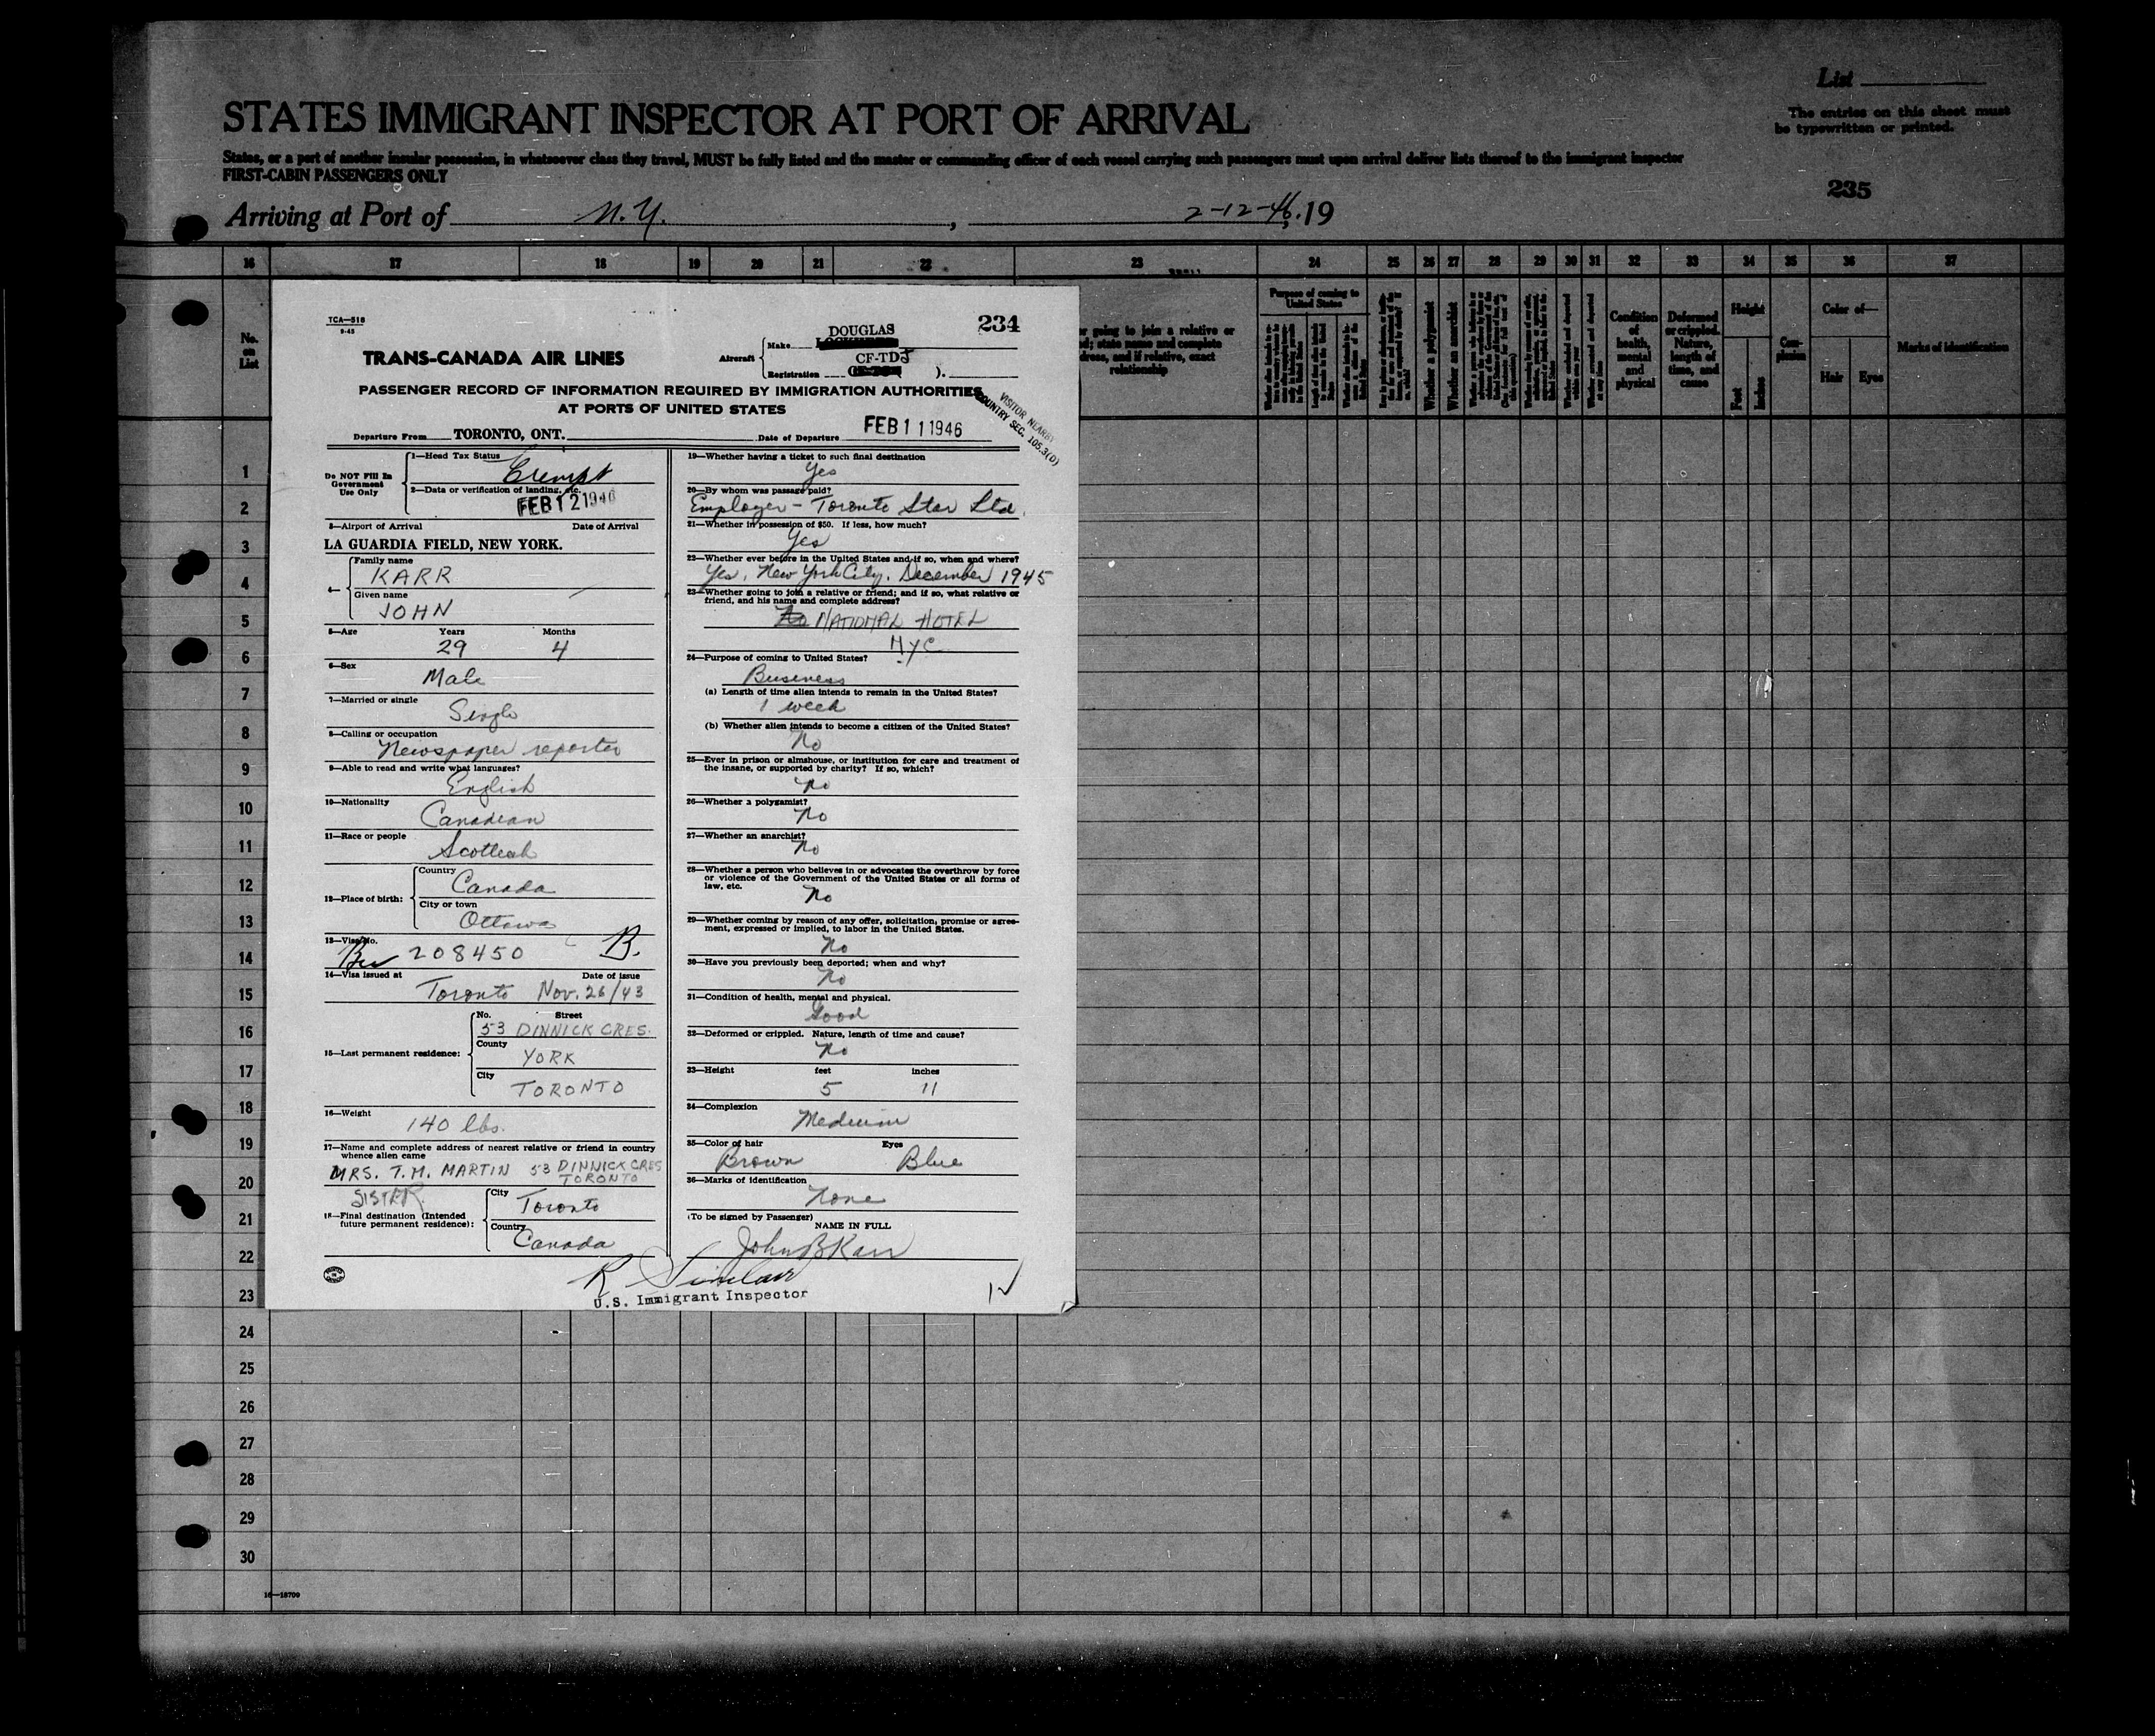 List
The entries on this sheet must
be typewritten or printed.
STATES IMMIGRANT INSPECTOR AT PORT OF ARRIVAL
States, or a port of another insular possession, in whatsoever class they travel, MUST be fully listed and the master or commanding officer of each vessel carrying such passengers must upon arrival deliver lists thereof to the immigrant inspector
FIRST-CABIN PASSENGERS ONLY
235
Arriving at Port of N.Y. , 2-12-46, 19
16 17 18 19 20 21 22 23 24 25 26 27 28 29 30 31 32 33 34 35 36 37
No.
on
List
going to join a relative or
state name and complete
and if relative, exact
relationship
Purpose of coming to
United States
Whether a polygamist
Whether an anarchist
Condition
of
health,
mental
and
physical
Deformed
or crippled.
Nature,
length of
time, and
cause
Height
Feet
Inches
Com-
plexion
Color of—
Hair
Eyes
Marks of identification
TCA—516
9-45
234
TRANS-CANADA AIR LINES
Aircraft
Make DOUGLAS
Registration CF-TDJ ).
PASSENGER RECORD OF INFORMATION REQUIRED BY IMMIGRATION AUTHORITIES
AT PORTS OF UNITED STATES
VISITOR NEARBY
COUNTRY SEC. 105.3(D)
Departure From TORONTO, ONT. Date of Departure FEB 11 1946
Do NOT Fill In
Government
Use Only
1—Head Tax Status
Exempt
2—Data or verification of landing, etc.
FEB 12 1946
3—Airport of Arrival Date of Arrival
LA GUARDIA FIELD, NEW YORK.
4—
Family name
KARR
Given name
JOHN
5—Age Years Months
29 4
6—Sex
Male
7—Married or single
Single
8—Calling or occupation
Newspaper reporter
9—Able to read and write what languages?
English
10—Nationality
Canadian
11—Race or people
Scottish
12—Place of birth:
Country
Canada
City or town
Ottawa
13—Visa No.
208450 B.
14—Visa issued at Date of issue
Toronto Nov. 26/43
15—Last permanent residence:
No. Street
53 DINNICK CRES.
County
YORK
City
TORONTO
16—Weight
140 lbs.
17—Name and complete address of nearest relative or friend in country
whence alien came
MRS. T.M. MARTIN 53 DINNICK CRES
TORONTO
SISTER
18—Final destination (Intended
future permanent residence):
City
Toronto
Country
Canada
19—Whether having a ticket to such final destination
Yes
20—By whom was passage paid?
Employer - Toronto Star Ltd.
21—Whether in possession of $50. If less, how much?
Yes
22—Whether ever before in the United States and if so, when and where?
Yes, New York City. December 1945
23—Whether going to join a relative or friend; and if so, what relative or
friend, and his name and complete address?
No NATIONAL HOTEL
NYC
24—Purpose of coming to United States?
Business
(a) Length of time alien intends to remain in the United States?
1 week
(b) Whether alien intends to become a citizen of the United States?
No
25—Ever in prison or almshouse, or institution for care and treatment of
the insane, or supported by charity? If so, which?
No
26—Whether a polygamist?
No
27—Whether an anarchist?
No
28—Whether a person who believes in or advocates the overthrow by force
or violence of the Government of the United States or all forms of
law, etc.
No
29—Whether coming by reason of any offer, solicitation, promise or agree-
ment, expressed or implied, to labor in the United States.
No
30—Have you previously been deported; when and why?
No
31—Condition of health, mental and physical.
Good
32—Deformed or crippled. Nature, length of time and cause?
No
33—Height feet inches
5 11
34—Complexion
Medium
35—Color of hair Eyes
Brown Blue
36—Marks of identification
None
(To be signed by Passenger)
NAME IN FULL
John B Karr
R Sinclair
U.S. Immigrant Inspector
1
2
3
4
5
6
7
8
9
10
11
12
13
14
15
16
17
18
19
20
21
22
23
24
25
26
27
28
29
30
16—18700